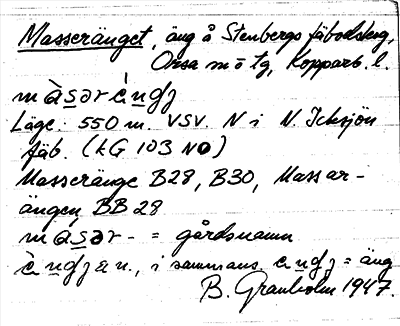 Masseränget, äng å Stenbergs fäbodskog,
Orsa sn o tg, Kopparb. l.
màsərèngʒ
Läge: 550 m VSV. N i N. Icksjön
fäb. (kG 103 NO)
Masseränge B28, B30, Massar-
ängen BB 28
màsər- = gårdsnamn
èngʒ a n., i sammans. engʒ = äng
B. Granholm 1947.